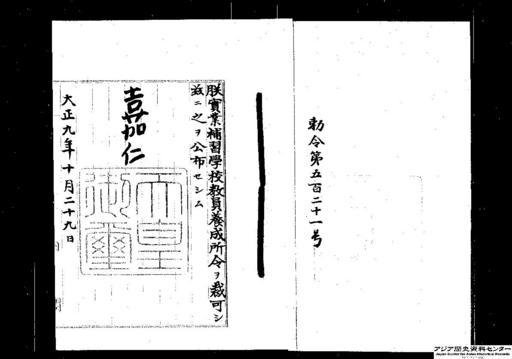 勅令第五百二十一号
朕實業補習學校教員養成所令ヲ裁可シ
茲ニ之ヲ公布セシム
嘉仁
天皇御璽
大正九年十月二十九日
アジア歴史資料センター
Japan Center for Asian Historical Records